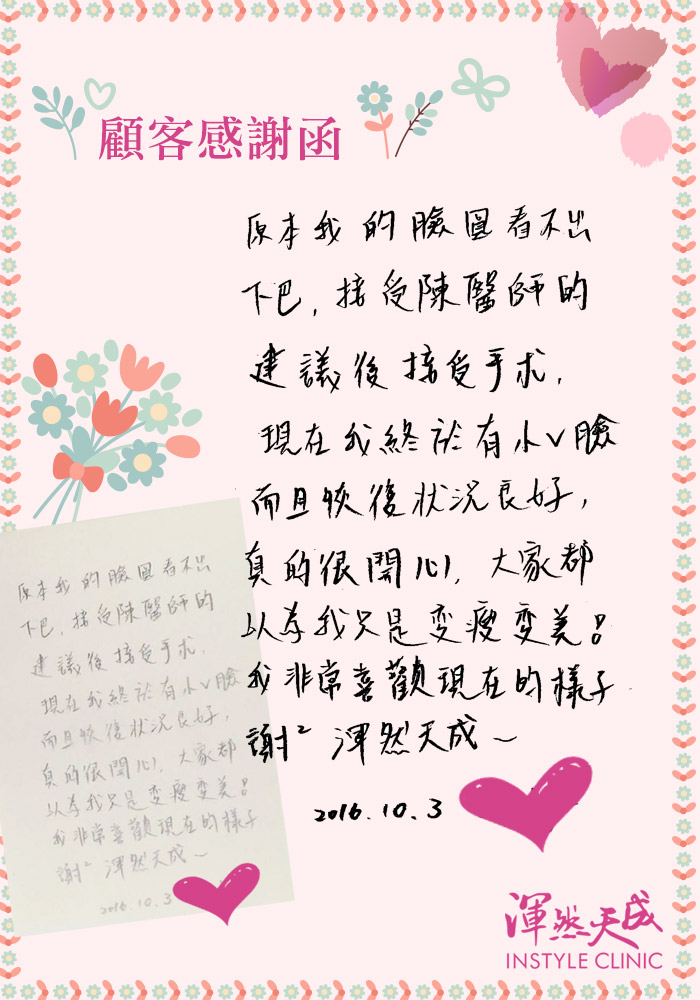 顧客感謝函
原本我的臉圓看不出
下巴,接受陳醫師的
建議後接受手术,
現在我終於有小V臉
而且恢復狀況良好,
真的很開心,大家都
以為我只是变瘦变美!
我非常喜歡現在的樣子
謝² 渾然天成~
2016.10.3
原本我的臉圓看不出
下巴,接受陳醫師的
建議後接受手术,
現在我終於有小V臉
而且恢復狀況良好,
真的很開心,大家都
以為我只是变瘦变美!
我非常喜歡現在的樣子
謝² 渾然天成~
2016.10.3
渾然天成
INSTYLE CLINIC